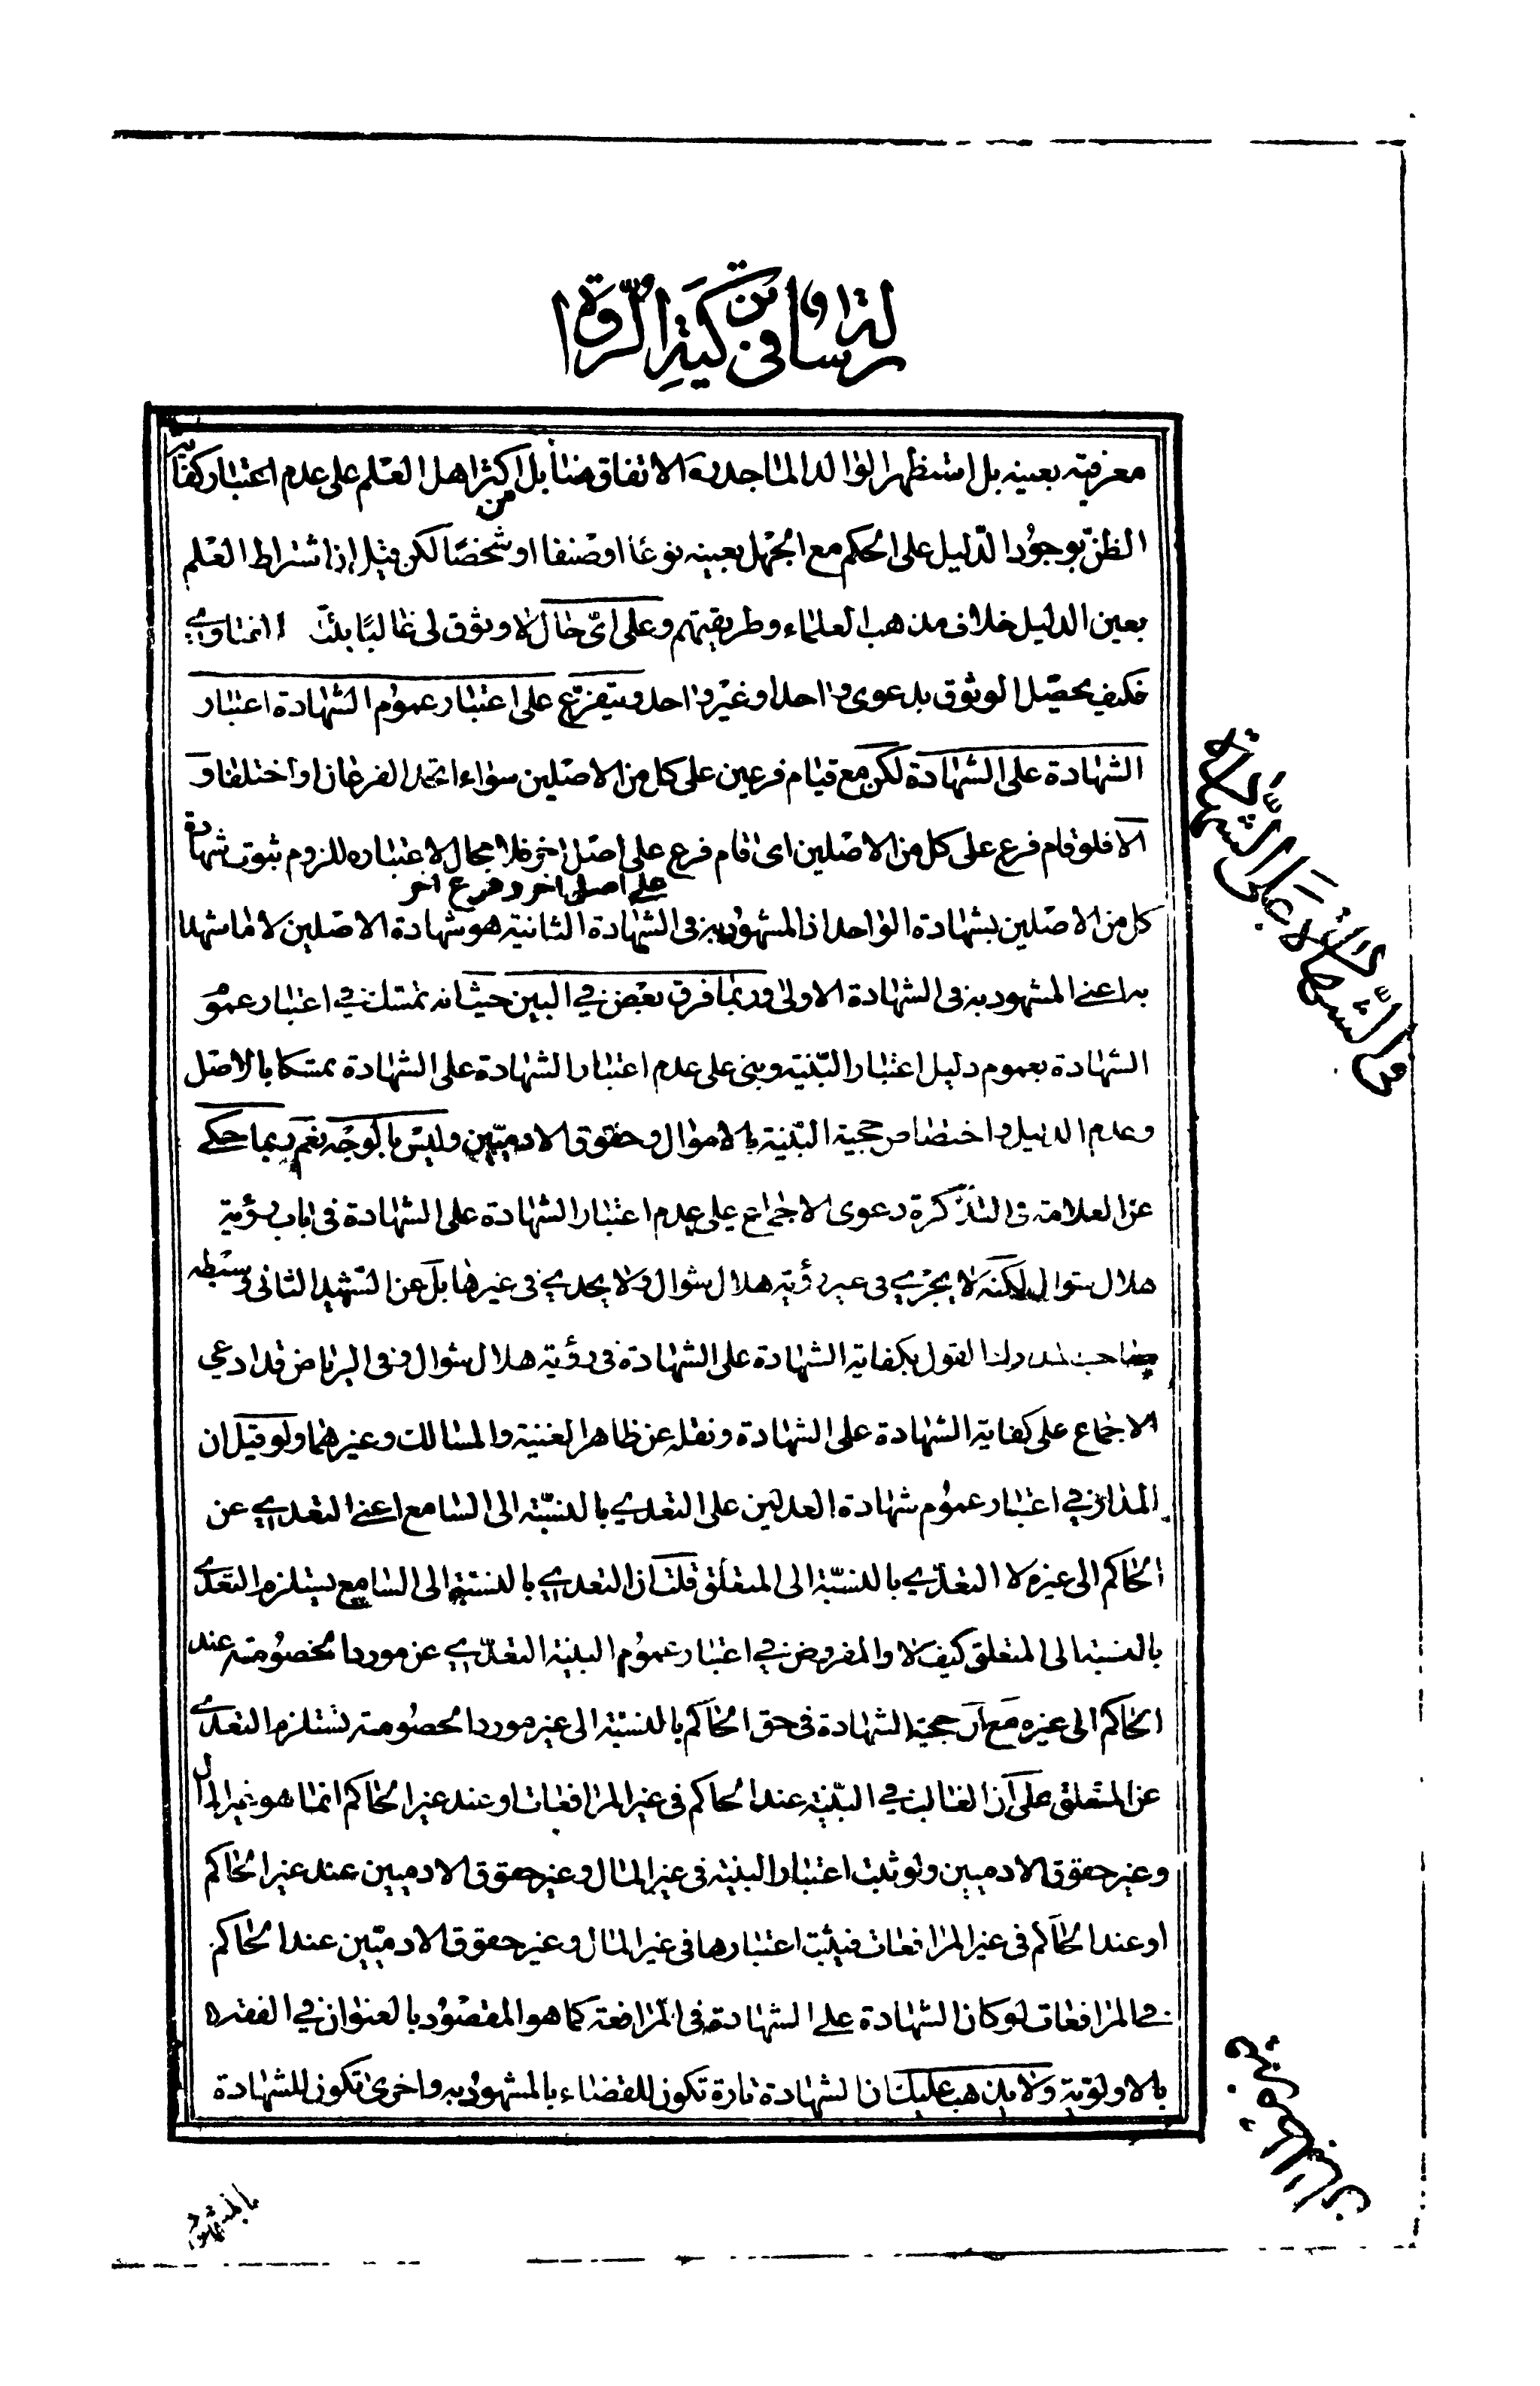 رسالة في تزكية الرواة
معرفته بعينه بل استظهر الوالد الماجد ره الاتفاق منا بل من اكثر اهل العلم على عدم اعتبار كفاية
الظن بوجود الدليل على الحكم مع الجهل بعينه نوعا او صنفا او شخصا لكن مثله اذ اشتراط العلم
بعين الدليل خلاف مذهب العلماء وطريقتهم وعلى اى حال لا وثوق لى غالبا
فكيف يحصل الوثوق بدعوى واحد او غير واحد ويتفرع على اعتبار عموم الشهادة اعتبار
الشهادة على الشهادة لكن مع قيام فرعين على كل من الاصلين سواء اتحد الفرعان او اختلفا و
الا فلو قام فرع على كل من الاصلين اى قام فرع على اصل اخر فلا مجال لاعتباره للزوم ثبوت شهادة
على اصل اخر وفرع اخر
كل من الاصلين بشهادة الواحد اذ المشهود به فى الشهادة الثانية هو شهادة الاصلين لا ما شهدا
به اعنى المشهود به فى الشهادة الاولى وربما فرق بعض في البين حيث انه تمسك في اعتبار عموم
الشهادة بعموم دليل اعتبار البينة وبنى على عدم اعتبار الشهادة على الشهادة تمسكا بالاصل
وعدم الدليل واختصاص حجية البينة بالاموال وحقوق الادميين وليس بالوجه نعم ربما حكى
عن العلامة فى التذكرة دعوى الاجماع على عدم اعتبار الشهادة على الشهادة فى باب رؤية
هلال شوال لكنه لا يجرى فى غير رؤية هلال شوال ولا يجدي فى غيرها بل عن الشهيد الثانى وسبطه
صاحب المدارك القول بكفاية الشهادة على الشهادة فى رؤية هلال شوال وفى الرياض قد ادعى
الاجماع على كفاية الشهادة على الشهادة ونقله عن ظاهر الغنية والمسالك وغيرهما ولو قيل ان
المدار في اعتبار عموم شهادة العدلين على التعدي بالنسبة الى السامع اعنى التعدي عن
الحاكم الى غيره لا التعدي بالنسبة الى المتعلق قلت ان التعدي بالنسبة الى السامع يستلزم التعدي
بالنسبة الى المتعلق كيف لا والمفروض في اعتبار عموم البينة التعدي عن مورد الخصومة عند
الحاكم الى غيره مع ان حجية الشهادة فى حق الحاكم بالنسبة الى غير مورد الخصومة تستلزم التعدي
عن المتعلق على ان الغالب في البينة عند الحاكم فى غير المرافعات او عند غير الحاكم انما هو غير المال
وغير حقوق الادميين ولو ثبت اعتبار البينة فى غير المال وغير حقوق الادميين عند غير الحاكم
او عند الحاكم فى غير المرافعات فيثبت اعتبارها فى غير المال وغير حقوق الادميين عند الحاكم
في المرافعات لو كان الشهادة على الشهادة فى المرافعة كما هو المقصود بالعنوان في الفقه
بالاولوية ولا يذهب عليك ان الشهادة تارة تكون للقضاء بالمشهود به واخرى تكون للشهادة
بالمشهود